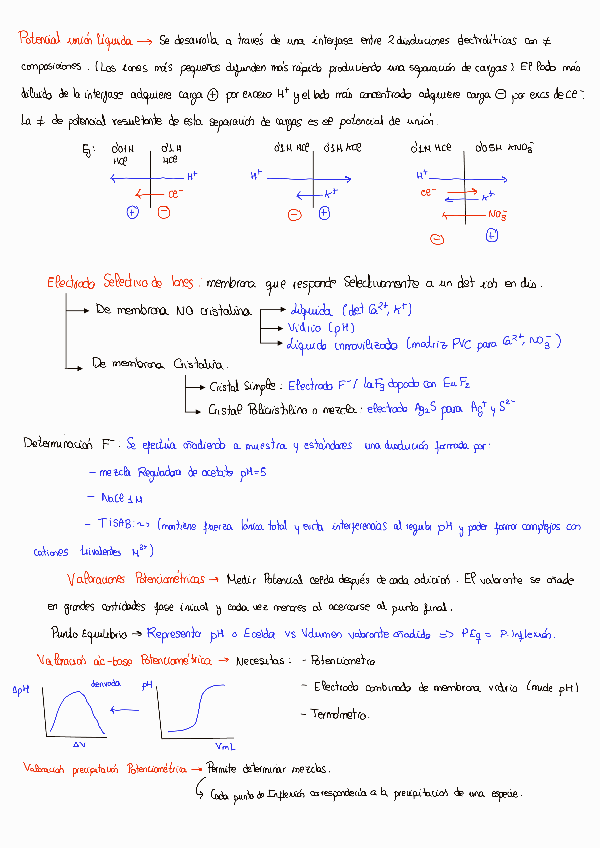 Potencial unión líquida → Se desarrolla a través de una interfase entre 2 disoluciones electrolíticas con ≠
composiciones. (Los iones más pequeños difunden más rápido produciendo una separación de cargas) El lado más
diluido de la interfase adquiere carga ⊕ por exceso H⁺ y el lado más concentrado adquiere carga ⊖ por excs de Cl⁻.
La ≠ de potencial resultante de esta separación de cargas es el potencial de unión.
Ej: 0'01M HCl 0'1M HCl 0'1M HCl 0'1M KCl 0'1M HCl 0'05M KNO₃⁻
H⁺ H⁺ H⁺
Cl⁻ K⁺ Cl⁻ K⁺
⊕ ⊖ ⊖ ⊕ NO₃⁻
⊖ ⊕
Electrodo Selectivo de Iones: membrana que responde Selectivamente a un det ion en dis.
→ De membrana NO cristalina → Líquida (det Ca²⁺, K⁺)
→ Vidrio (pH)
→ Líquido inmovilizado (matriz PVC para Ca²⁺, NO₃⁻)
→ De membrana Cristalina.
→ Cristal Simple: Electrodo F⁻ / LaF₃ dopado con EuF₂
→ Cristal Policristilino o mezcla: electrodo Ag₂S para Ag⁺ y S²⁻
Determinación F⁻. Se efectúa añadiendo a muestra y estándares una disolución formada por:
- mezcla Reguladora de acetato pH=5
- NaCl 1M
- TISAB: ~> (mantiene fuerza iónica total y evita interferencias al regular pH y poder formar complejos con
cationes trivalentes M³⁺)
Valoraciones Potenciométricas → Medir Potencial celda después de cada adición. El valorante se añade
en grandes cantidades fase inicial y cada vez menores al acercarse al punto final.
Punto Equilibrio → Representa pH o Ecelda vs Volumen valorante añadido => P.Eq = P. Inflexión.
Valoración ác-base Potenciométrica → Necesitas: - Potenciometro
ΔpH derivada pH - Electrodo combinado de membrana vidrio (mide pH)
- Termómetro.
ΔV VmL
Valoración precipitación Potenciométrica → Permite determinar mezclas.
↳ Cada punto de Inflexión correspondería a la precipitación de una especie.